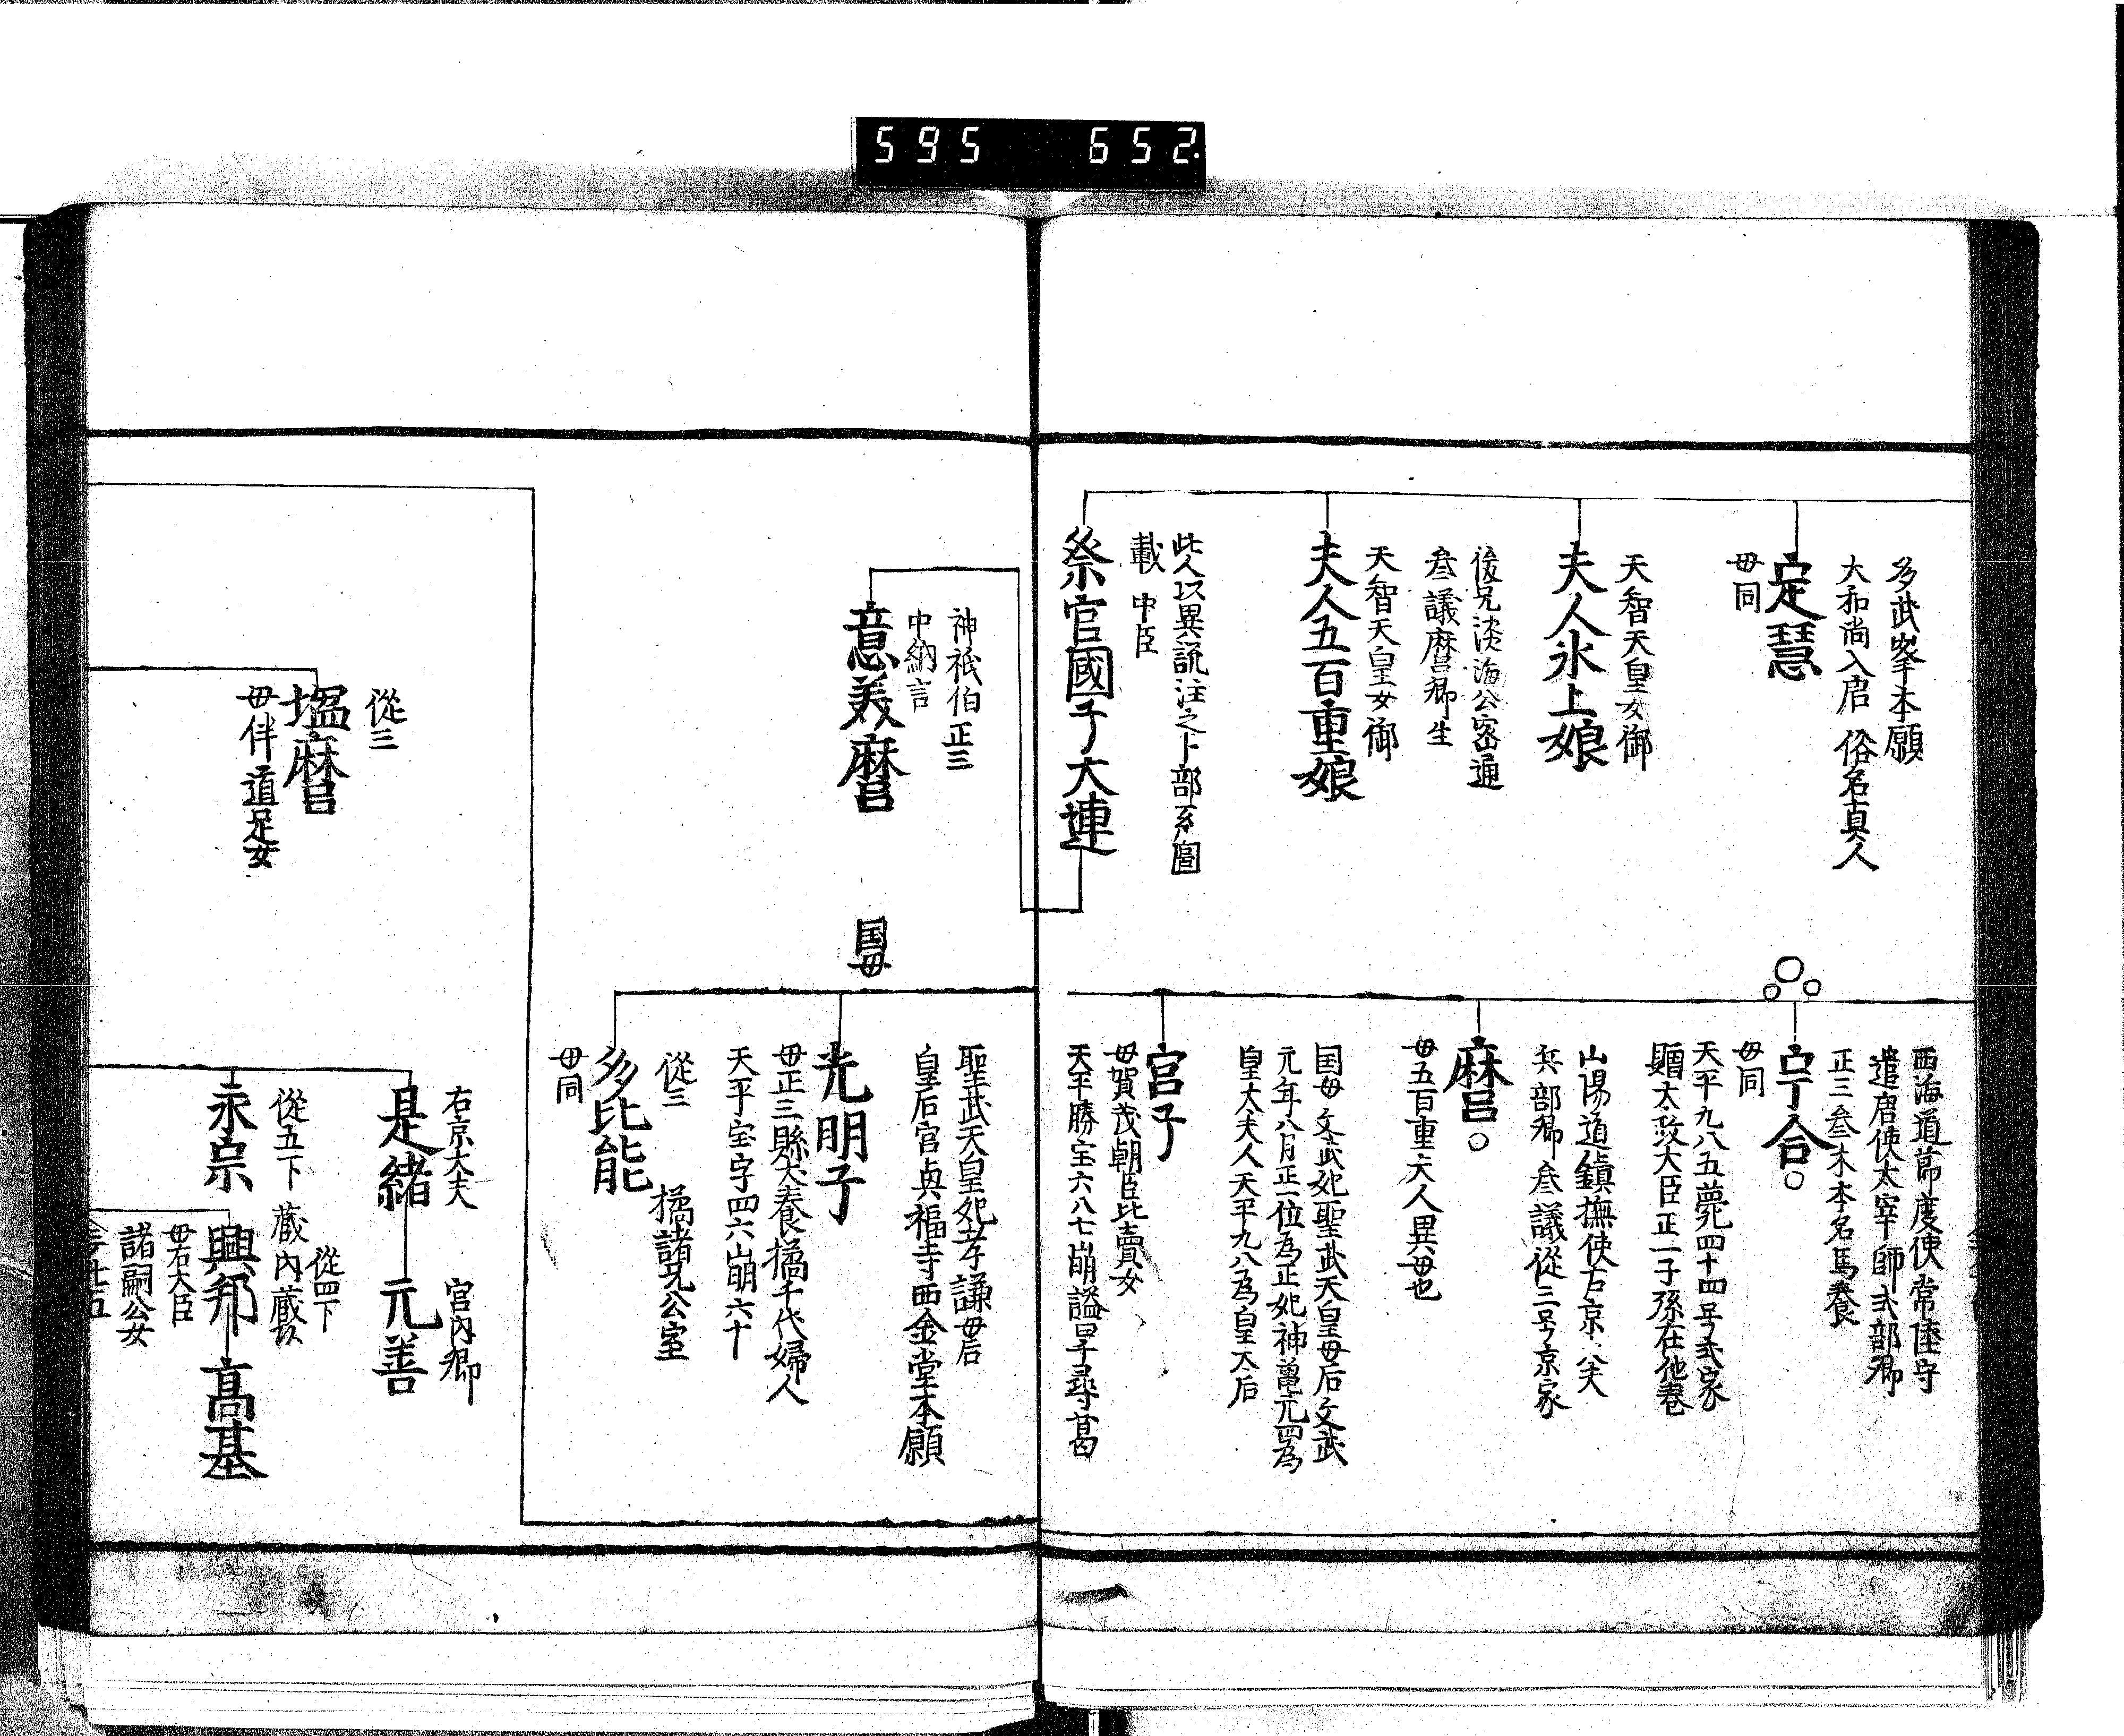 595 652.
多武峯本願
大和尚入唐 俗名真人
定慧
母同
天智天皇女御
夫人氷上娘
後兄淡海公密通
参議麿卿生
天智天皇女御
夫人五百重娘
此人以異説注之卜部系圖
載 中臣
祭官國子大連
西海道節度使常陸守
遣唐使太宰帥式部卿
正三参木本名馬養
宇合
母同
天平九八五薨四十四号式家
贈太政大臣正一子孫在他巻
山陽道鎮撫使右京大夫
兵部卿参議従三号京家
麿
母五百重夫人異母也
国母文武妃聖武天皇母后文武
元年八月正一位為正妃神亀元四為
皇大夫人天平九八為皇太后
宮子
母賀茂朝臣比賣女
天平勝宝六八七崩謚曰千尋葛
神祇伯正三
中納言
意美麿
国母
聖武天皇妃孝謙母后
皇后宮興福寺西金堂本願
光明子
母正三縣犬養橘千代婦人
天平宝字四六崩六十
従三 橘諸兄公室
多比能
母同
従三
塩麿
母伴道足女
右京大夫
是緒
宮内卿
元善
従五下 蔵内蔵頭
永宗
従四下
興邦
母右大臣
諸嗣公女
高基